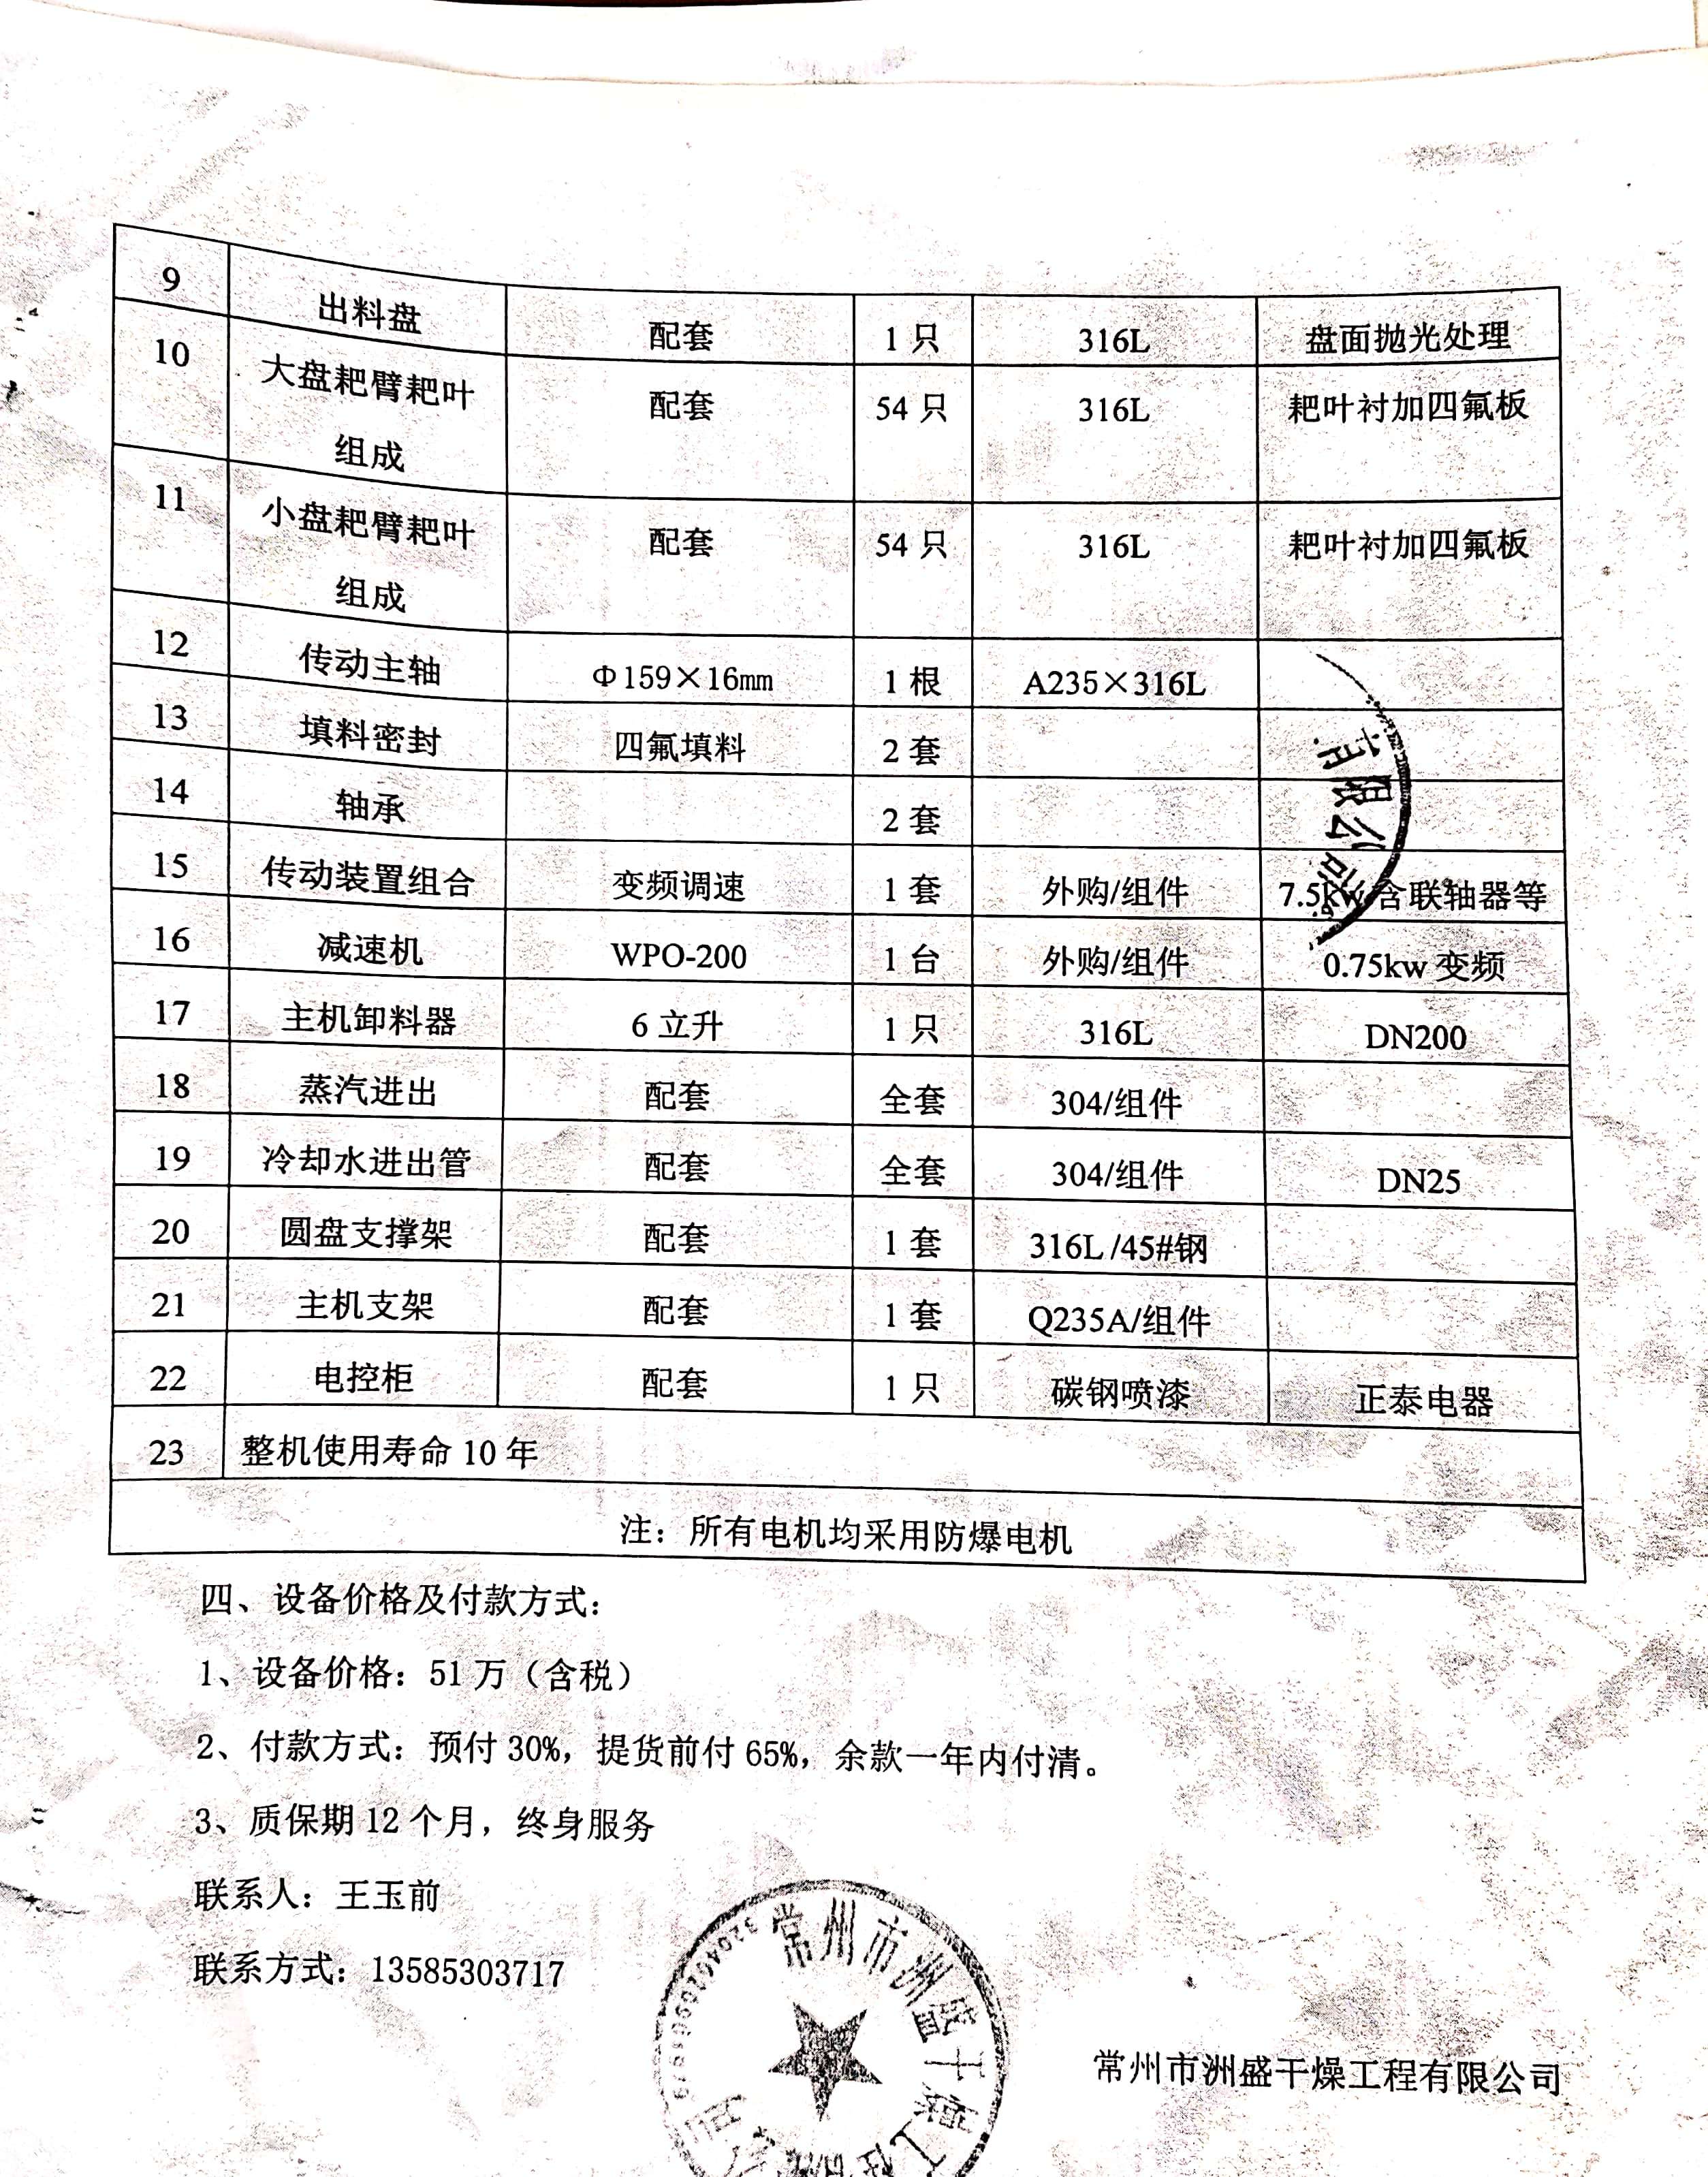 9 出料盘 配套 1 只 316L 盘面抛光处理
10 大盘耙臂耙叶 配套 54 只 316L 耙叶衬加四氟板
组成
11 小盘耙臂耙叶 配套 54 只 316L 耙叶衬加四氟板
组成
12 传动主轴 Φ159×16mm 1 根 A235×316L
13 填料密封 四氟填料 2 套
14 轴承 2 套
15 传动装置组合 变频调速 1 套 外购/组件 7.5kw 含联轴器等
16 减速机 WPO-200 1 台 外购/组件 0.75kw 变频
17 主机卸料器 6 立升 1 只 316L DN200
18 蒸汽进出 配套 全套 304/组件
19 冷却水进出管 配套 全套 304/组件 DN25
20 圆盘支撑架 配套 1 套 316L /45#钢
21 主机支架 配套 1 套 Q235A/组件
22 电控柜 配套 1 只 碳钢喷漆 正泰电器
23 整机使用寿命 10 年
注：所有电机均采用防爆电机
有限公司
四、设备价格及付款方式：
1、设备价格：51 万（含税）
2、付款方式：预付 30%，提货前付 65%，余款一年内付清。
3、质保期 12 个月，终身服务
联系人：王玉前
联系方式：13585303717
常州市洲盛干燥工
常州市洲盛干燥工程有限公司